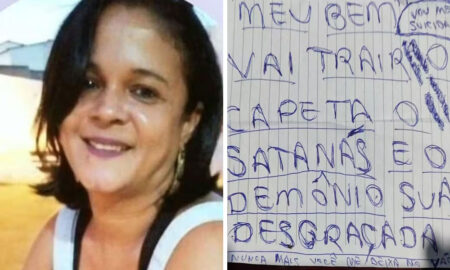 MEU BEM
VOU ME
SUICIDA
VAI TRAIR NO
CAPETA O
SATANÁS E O
DEMÔNIO SUA
DESGRAÇADA
NUNCA MAIS VOCÊ ME DEIXA NO